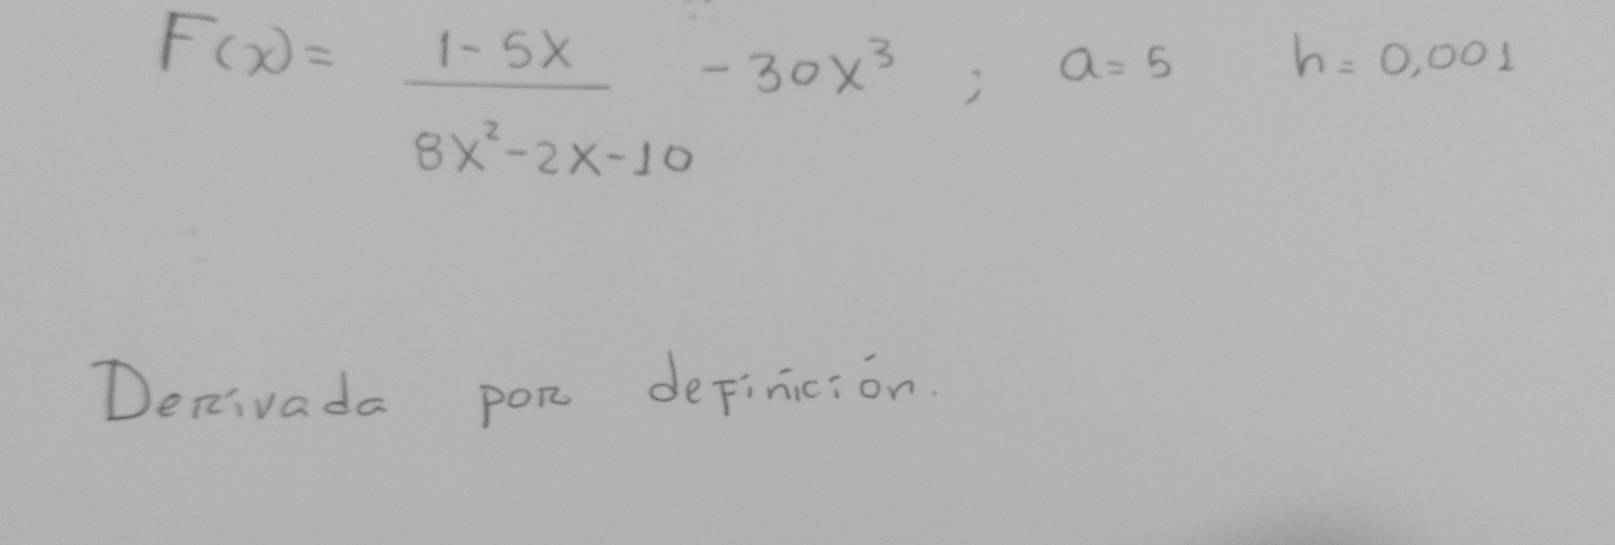 F(x) = 1 - 5x / 8x² - 2x - 10 - 30x³ ; a = 5 h = 0,001
Derivada por definición.